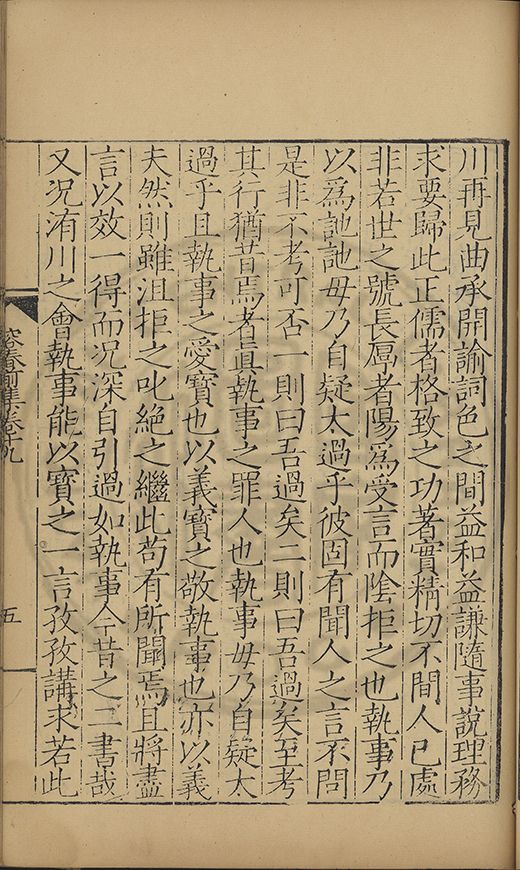 川再見曲承開諭詞色之間益和益謙隨事說理務
求要歸此正儒者格致之功著實精切不間人已處
非若世之號長厚者陽為受言而陰拒之也執事乃
以為訑訑毋乃自疑太過乎彼固有聞人之言不問
是非不考可否一則曰吾過矣二則曰吾過矣至考
其行猶昔焉者真執事之罪人也執事毋乃自疑太
過乎且執事之愛寶也以義寶之敬執事也亦以義
夫然則雖沮拒之叱絕之繼此苟有所聞焉且將盡
言以效一得而况深自引過如執事今昔之二書哉
又况洧川之會執事能以寶之一言孜孜講求若此
容春前集卷十九
五